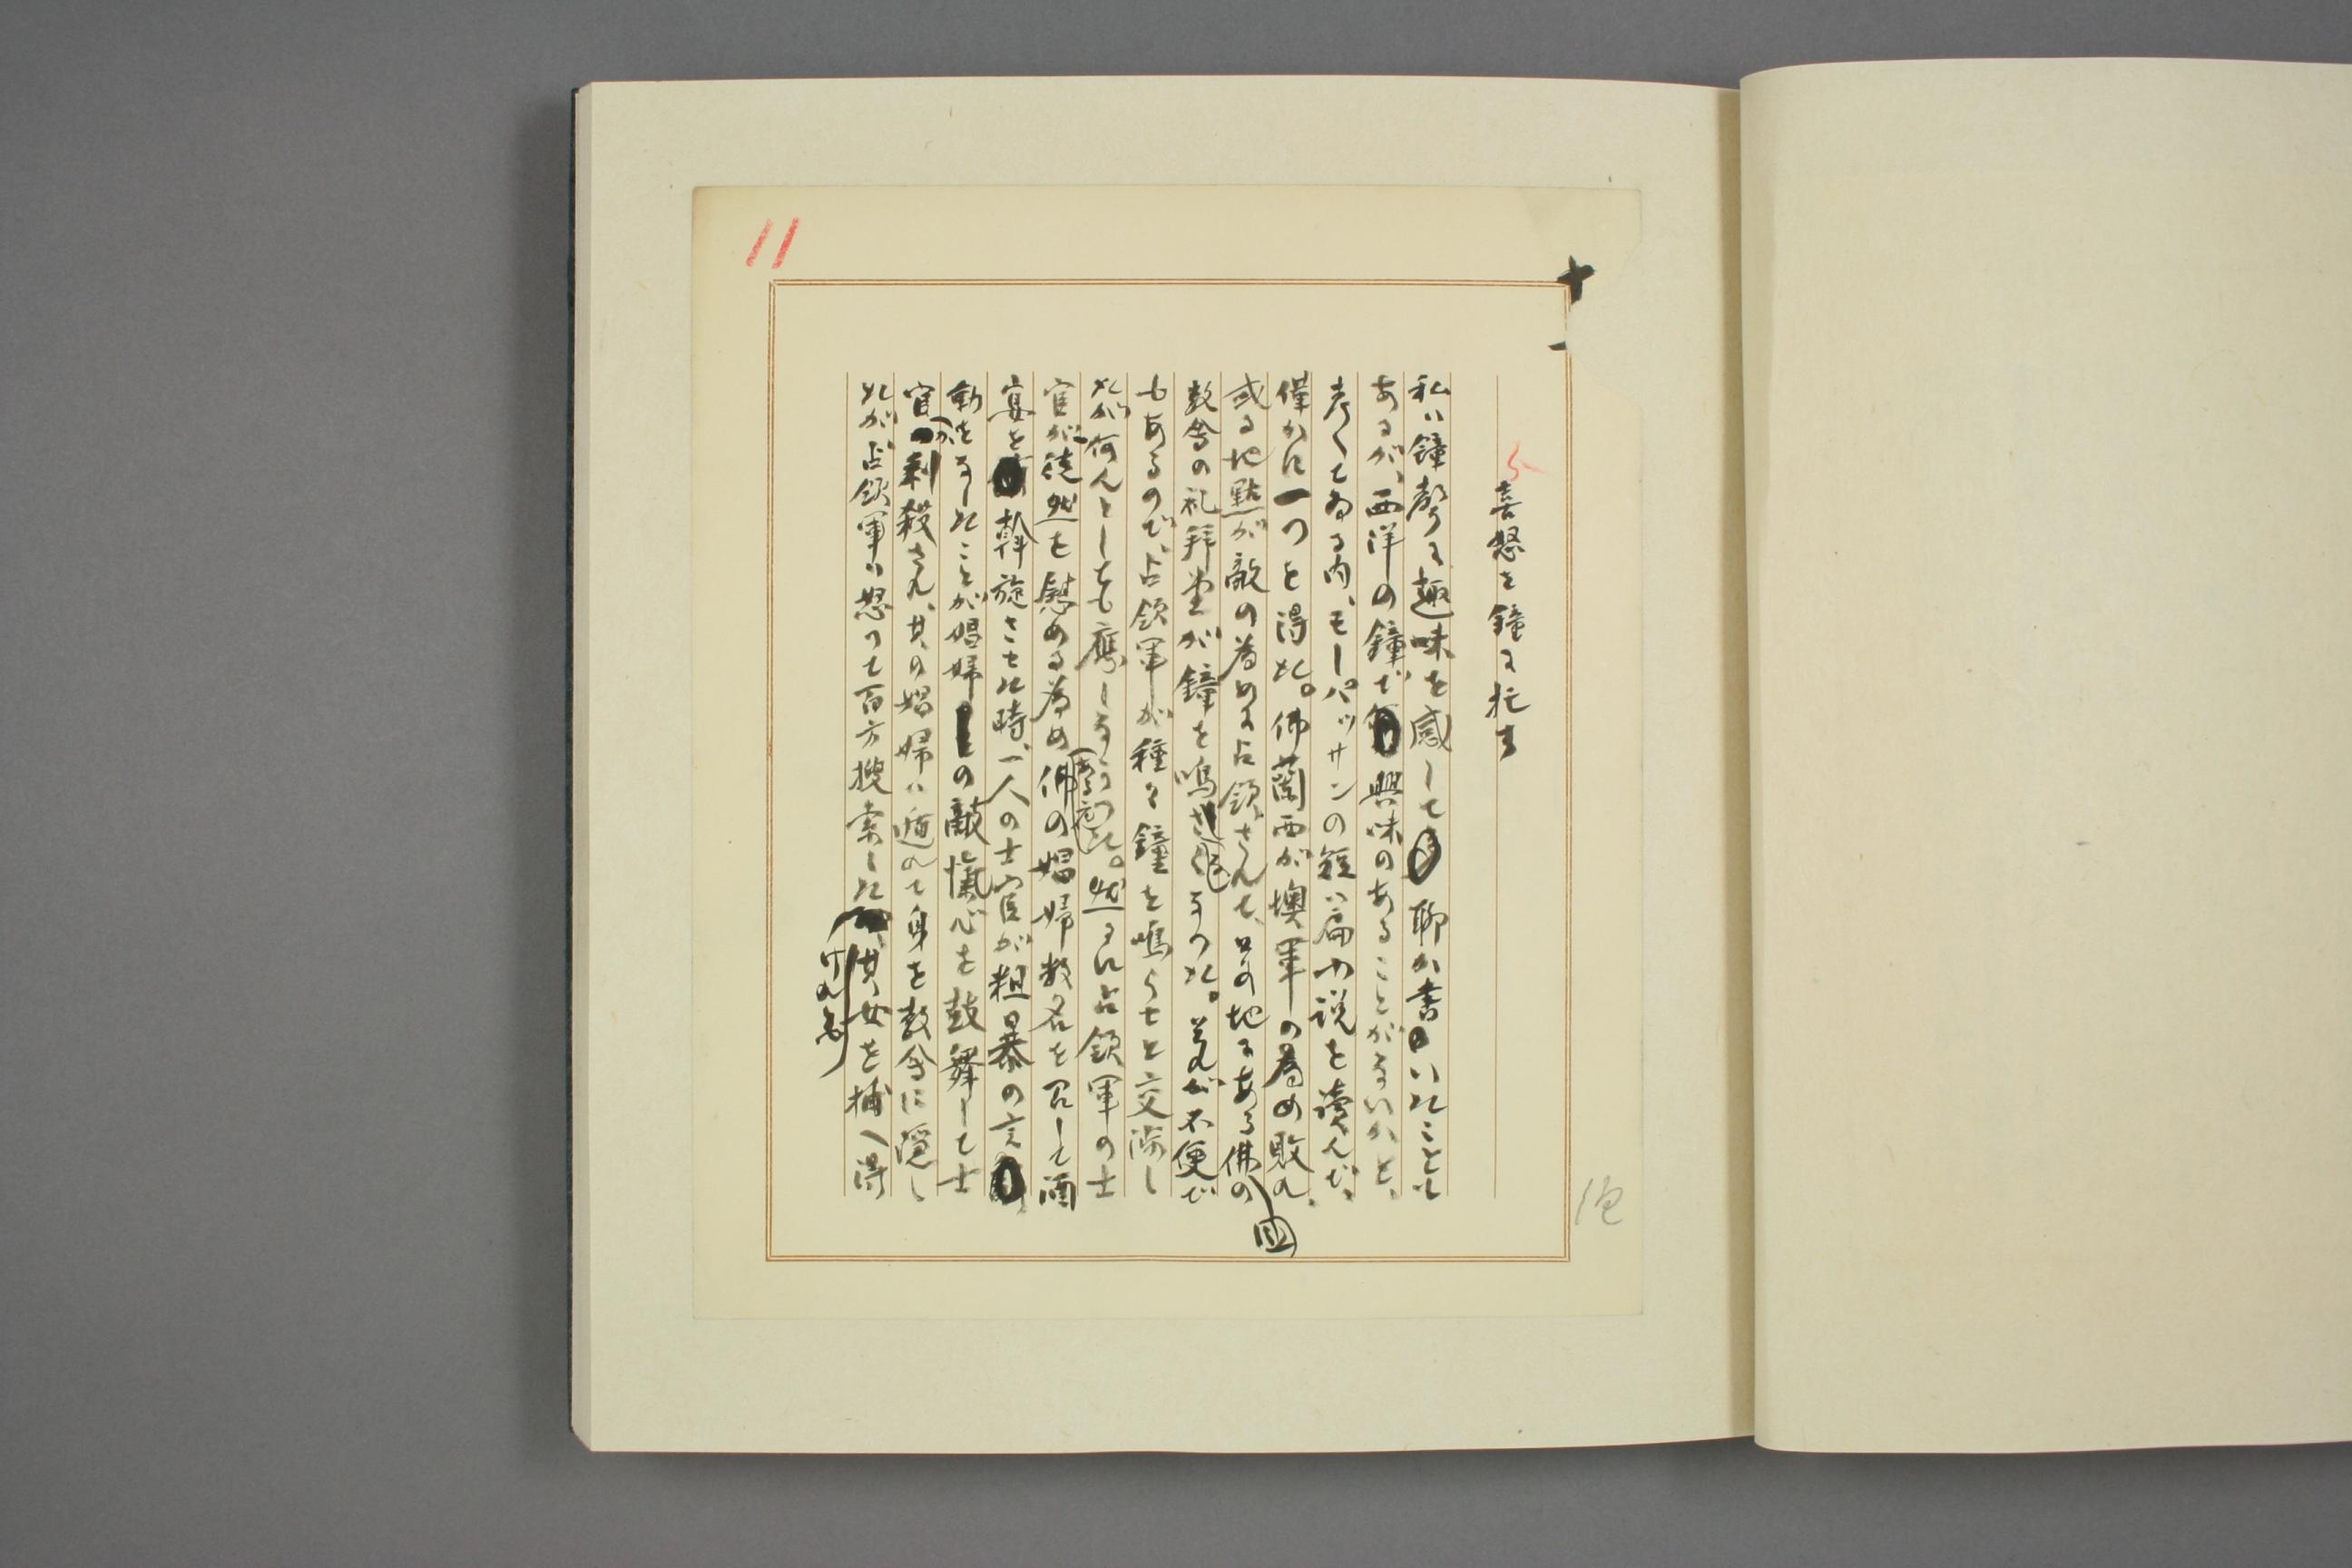 11
十一
喜怒を鐘に托す
私は鐘聲に趣味を感して聊か書いたことも
あるが、西洋の鐘で興味のあることがないかと、
考へてゐる内、モーパッサンの短い篇小説を讀んだ、
僅かに一つを得た。佛蘭西が墺軍の為め敗れ、
或る地點が敵の為めに占領されて、其の地にある佛國の
教會の礼拝堂が鐘を鳴さなくなつた。それが不便で
もあるので、占領軍が種々鐘を鳴らせと交渉し
たが何んとしても應じなかつた。然るに占領軍の士
官が徒然を慰める為め佛の娼婦数名を召して酒
宴を斡旋させた時、一人の士官が粗暴の言
動をなしたことが娼婦の敵愾心を鼓舞して士
官が刺殺され、其の娼婦は遁れて身を教會に隠し
たが占領軍は怒つて百方搜索したけれども其女を捕へ得